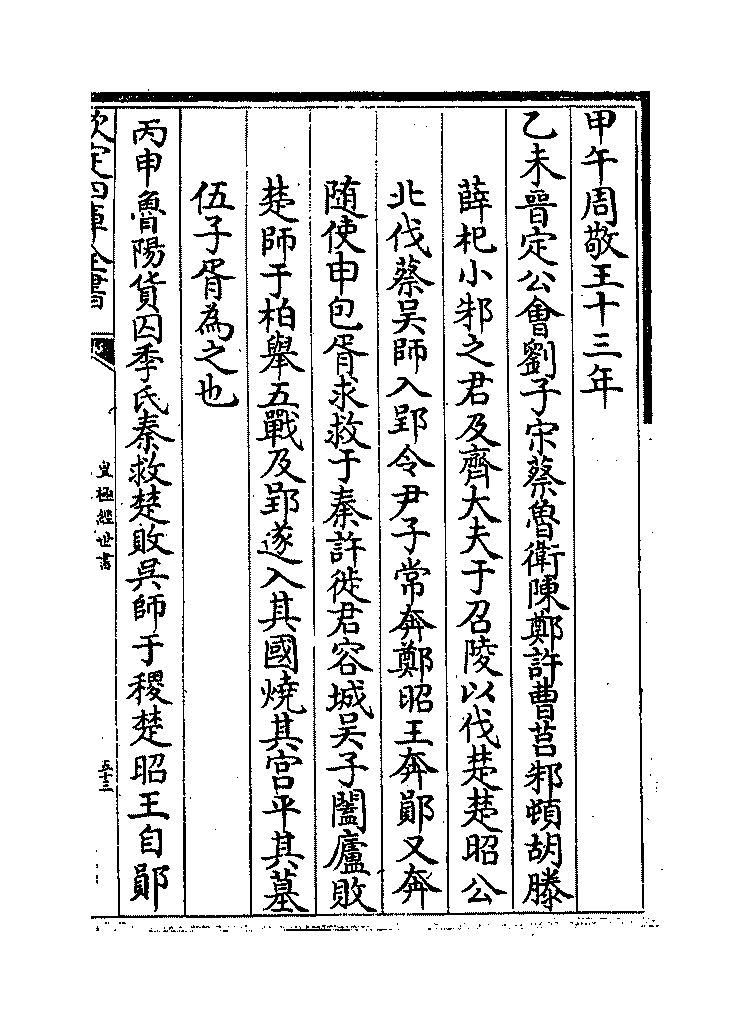 甲午周敬王十三年
乙未晉定公會劉子宋蔡魯衛陳鄭許曹莒邾頓胡滕
薛杞小邾之君及齊大夫于召陵以伐楚楚昭公
北伐蔡吳師入郢令尹子常奔鄭昭王奔鄖又奔
随使申包胥求救于秦許徙君容城吳子闔廬敗
楚師于柏舉五戰及郢遂入其國燒其宮平其墓
伍子胥為之也
丙申魯陽貨囚季氏秦救楚敗吳師于稷楚昭王自鄖
欽定四庫全書
皇極經世書
五十三